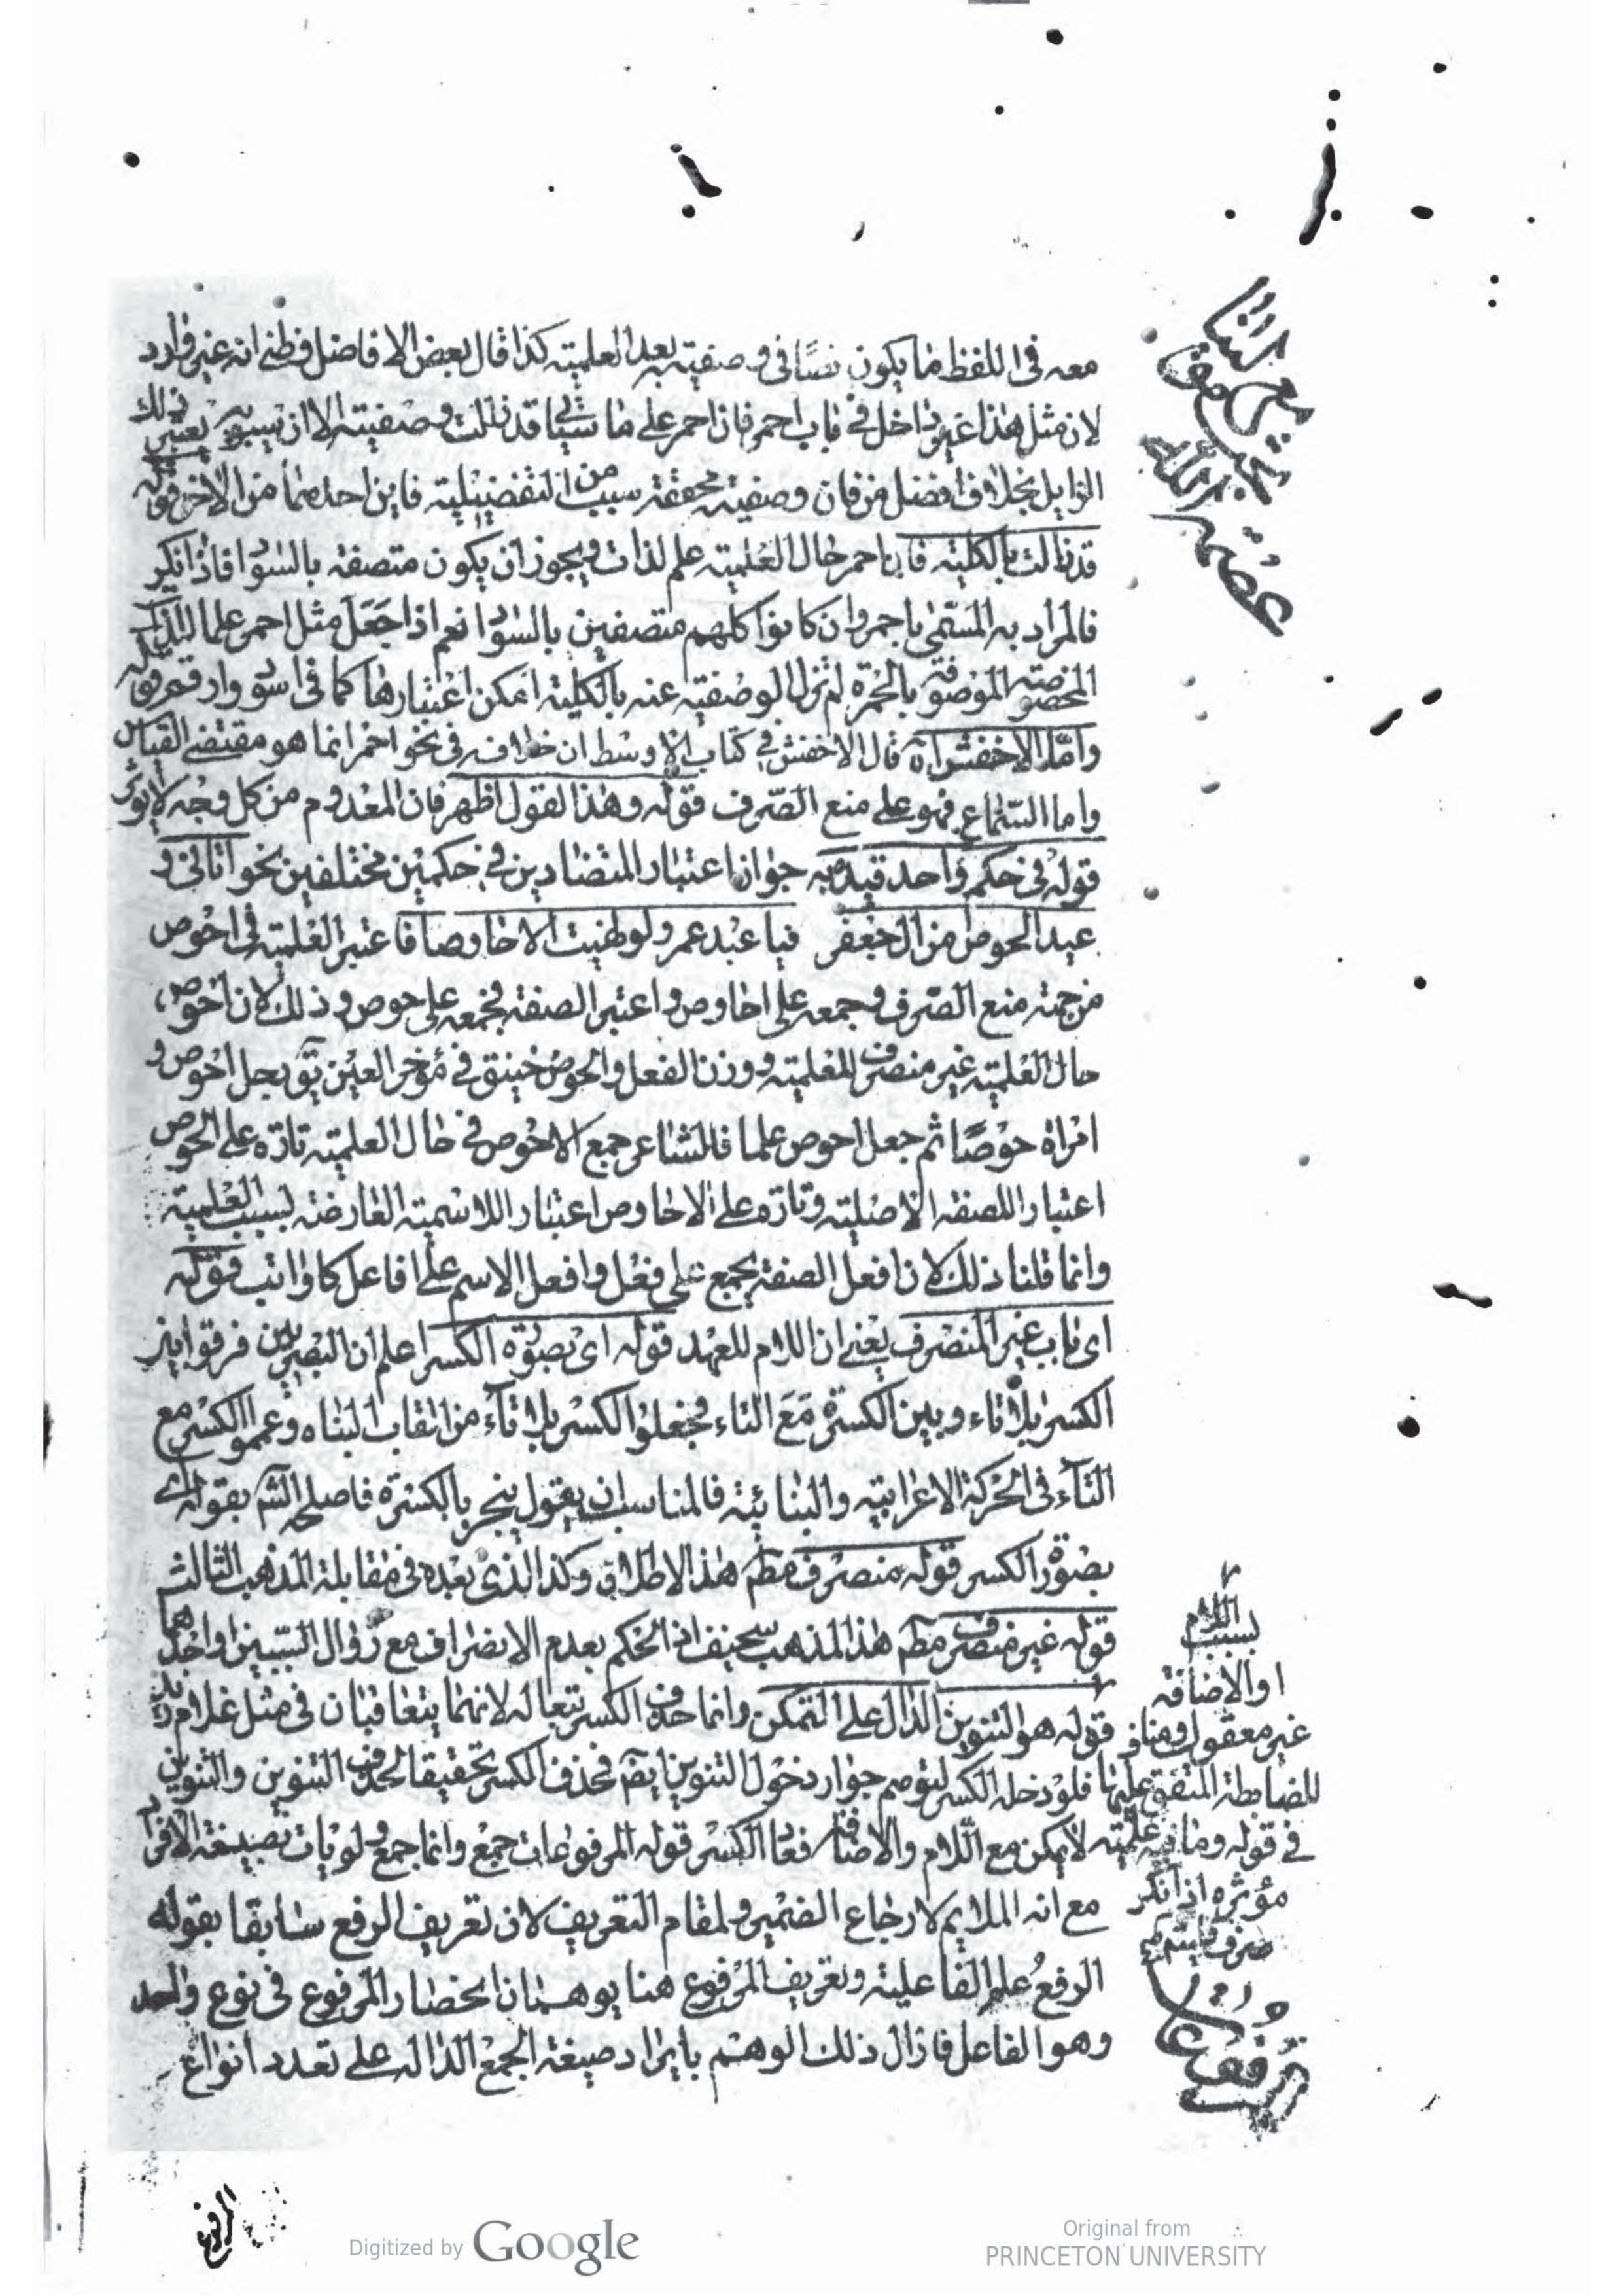 معه فى اللفظ ما يكون نصًا فى وصفيته بعد العلمية كذا قال بعض الافاضل فظنى انه غير وارد
لان مثل هذا غير داخل فى باب احمر فان احمر على ما سياتى قد زالت وصفيته الا ان سيبويه يعتبر ذلك
الزايل بخلاف افضل من فان وصفيته محققة بسبب من التفضيلية فاين احدهما من الاخر قوله
قد زالت بالكلية فان احمر حال العلمية علم لذات ويجوز ان يكون متصفة بالسواد فاذا نكر
فالمراد به المسمى باحمر وان كانوا كلهم متصفين بالسواد نعم اذا جعل مثل احمر علما للذات
المخصوصة الموصوفة بالحمرة لم تزل الوصفية عنه بالكلية امكن اعتبارها كما فى اسود وارقم قوله
واما الاخفش اه قال الاخفش فى كتاب الاوسط ان خلافه فى نحو احمر انما هو مقتضى القياس
واما السماع فهو على منع الصرف قوله وهذا القول اظهر فان المعدوم من كل وجه لا يؤثر
قوله فى حكم واحد قيد به جواز اعتبار المتضادين فى حكمين مختلفين نحو اتانى و
عيد الحوص من ال جعفر فيا عبد عمرو لو نهيت الاحاوصا فاعتبر العلمية فى احوص
من جهة منع الصرف وجمعه على احاوص واعتبر الصفة فجمعه على حوص وذلك لان احوص
حال العلمية غير منصرف للعلمية ووزن الفعل والحوص ضيق فى مؤخر العين يق رجل احوص و
امراة حوصًا ثم جعل احوص علما فالشاعر جمع الاحوص فى حال العلمية تارة على الحوص
اعتبارا للصفة الاصلية وتارة على الاحاوص اعتبارا للاسمية العارضة بسبب العلمية
وانما قلنا ذلك لان افعل الصفة يجمع على فعل وافعل الاسم على افاعل كاواثب قوله
اى باب غير المنصرف يعنى ان اللام للعهد قوله اى بصورة الكسر اعلم ان البصريين فرقوا بين
الكسر بلا تاء وبين الكسرة مع التاء فجعلوا الكسر بلا تاء من القاب البناء وعمموا الكسر مع
التاء فى الحركة الاعرابية والبنائية فالمناسب ان يقول ينجر بالكسرة فاصلحه الش بقوله اى
بصورة الكسر قوله منصرف مط هذا الاطلاق وكذا الذى بعده فى مقابلة المذهب الثالث
قوله غير منصرف مط هذا المذهب سخيف اذ الحكم بعدم الانصراف مع زوال السببين او احدهما
بسبب اللام
او الاضافة
غير معقول ومناف
للضابطة المتفق عليها
فى قوله وما فيه علمية
مؤثرة اذا نكر
صرف
قوله هو التنوين الدال على التمكن وانما حذف الكسر تبعا له لانهما يتعاقبان فى مثل غلام زيد
فلو دخل الكسر لتوهم جواز دخول التنوين ايض فحذف الكسر تحقيقا لحذف التنوين والتنوين
لا يمكن مع اللام والاضافة فعاد الكسر قوله المرفوعات جمع وانما جمع ولو يات بصيغة الافراد
مع انه الملايم لارجاع الضمير ولمقام التعريف لان تعريف الرفع سابقا بقوله
الرفع علم الفاعلية وتعريف المرفوع هنا يوهمان انحصار المرفوع فى نوع واحد
وهو الفاعل فازال ذلك الوهم بايراد صيغة الجمع الدالة على تعدد انواع
المرفوعات
المرفوع
Digitized by Google
Original from
PRINCETON UNIVERSITY